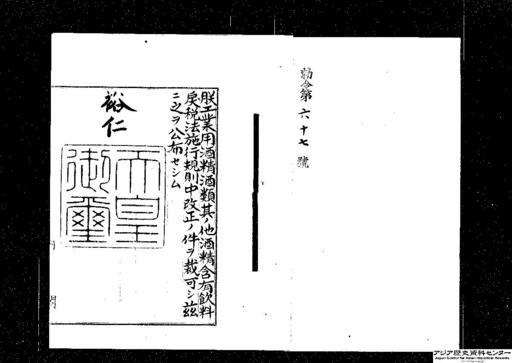 勅令第六十七號
朕工業用酒精酒類其ノ他酒精含有飲料
戾税法施行規則中改正ノ件ヲ裁可シ茲
ニ之ヲ公布セシム
裕仁
天皇
御璽
アジア歴史資料センター
Japan Center for Asian Historical Records